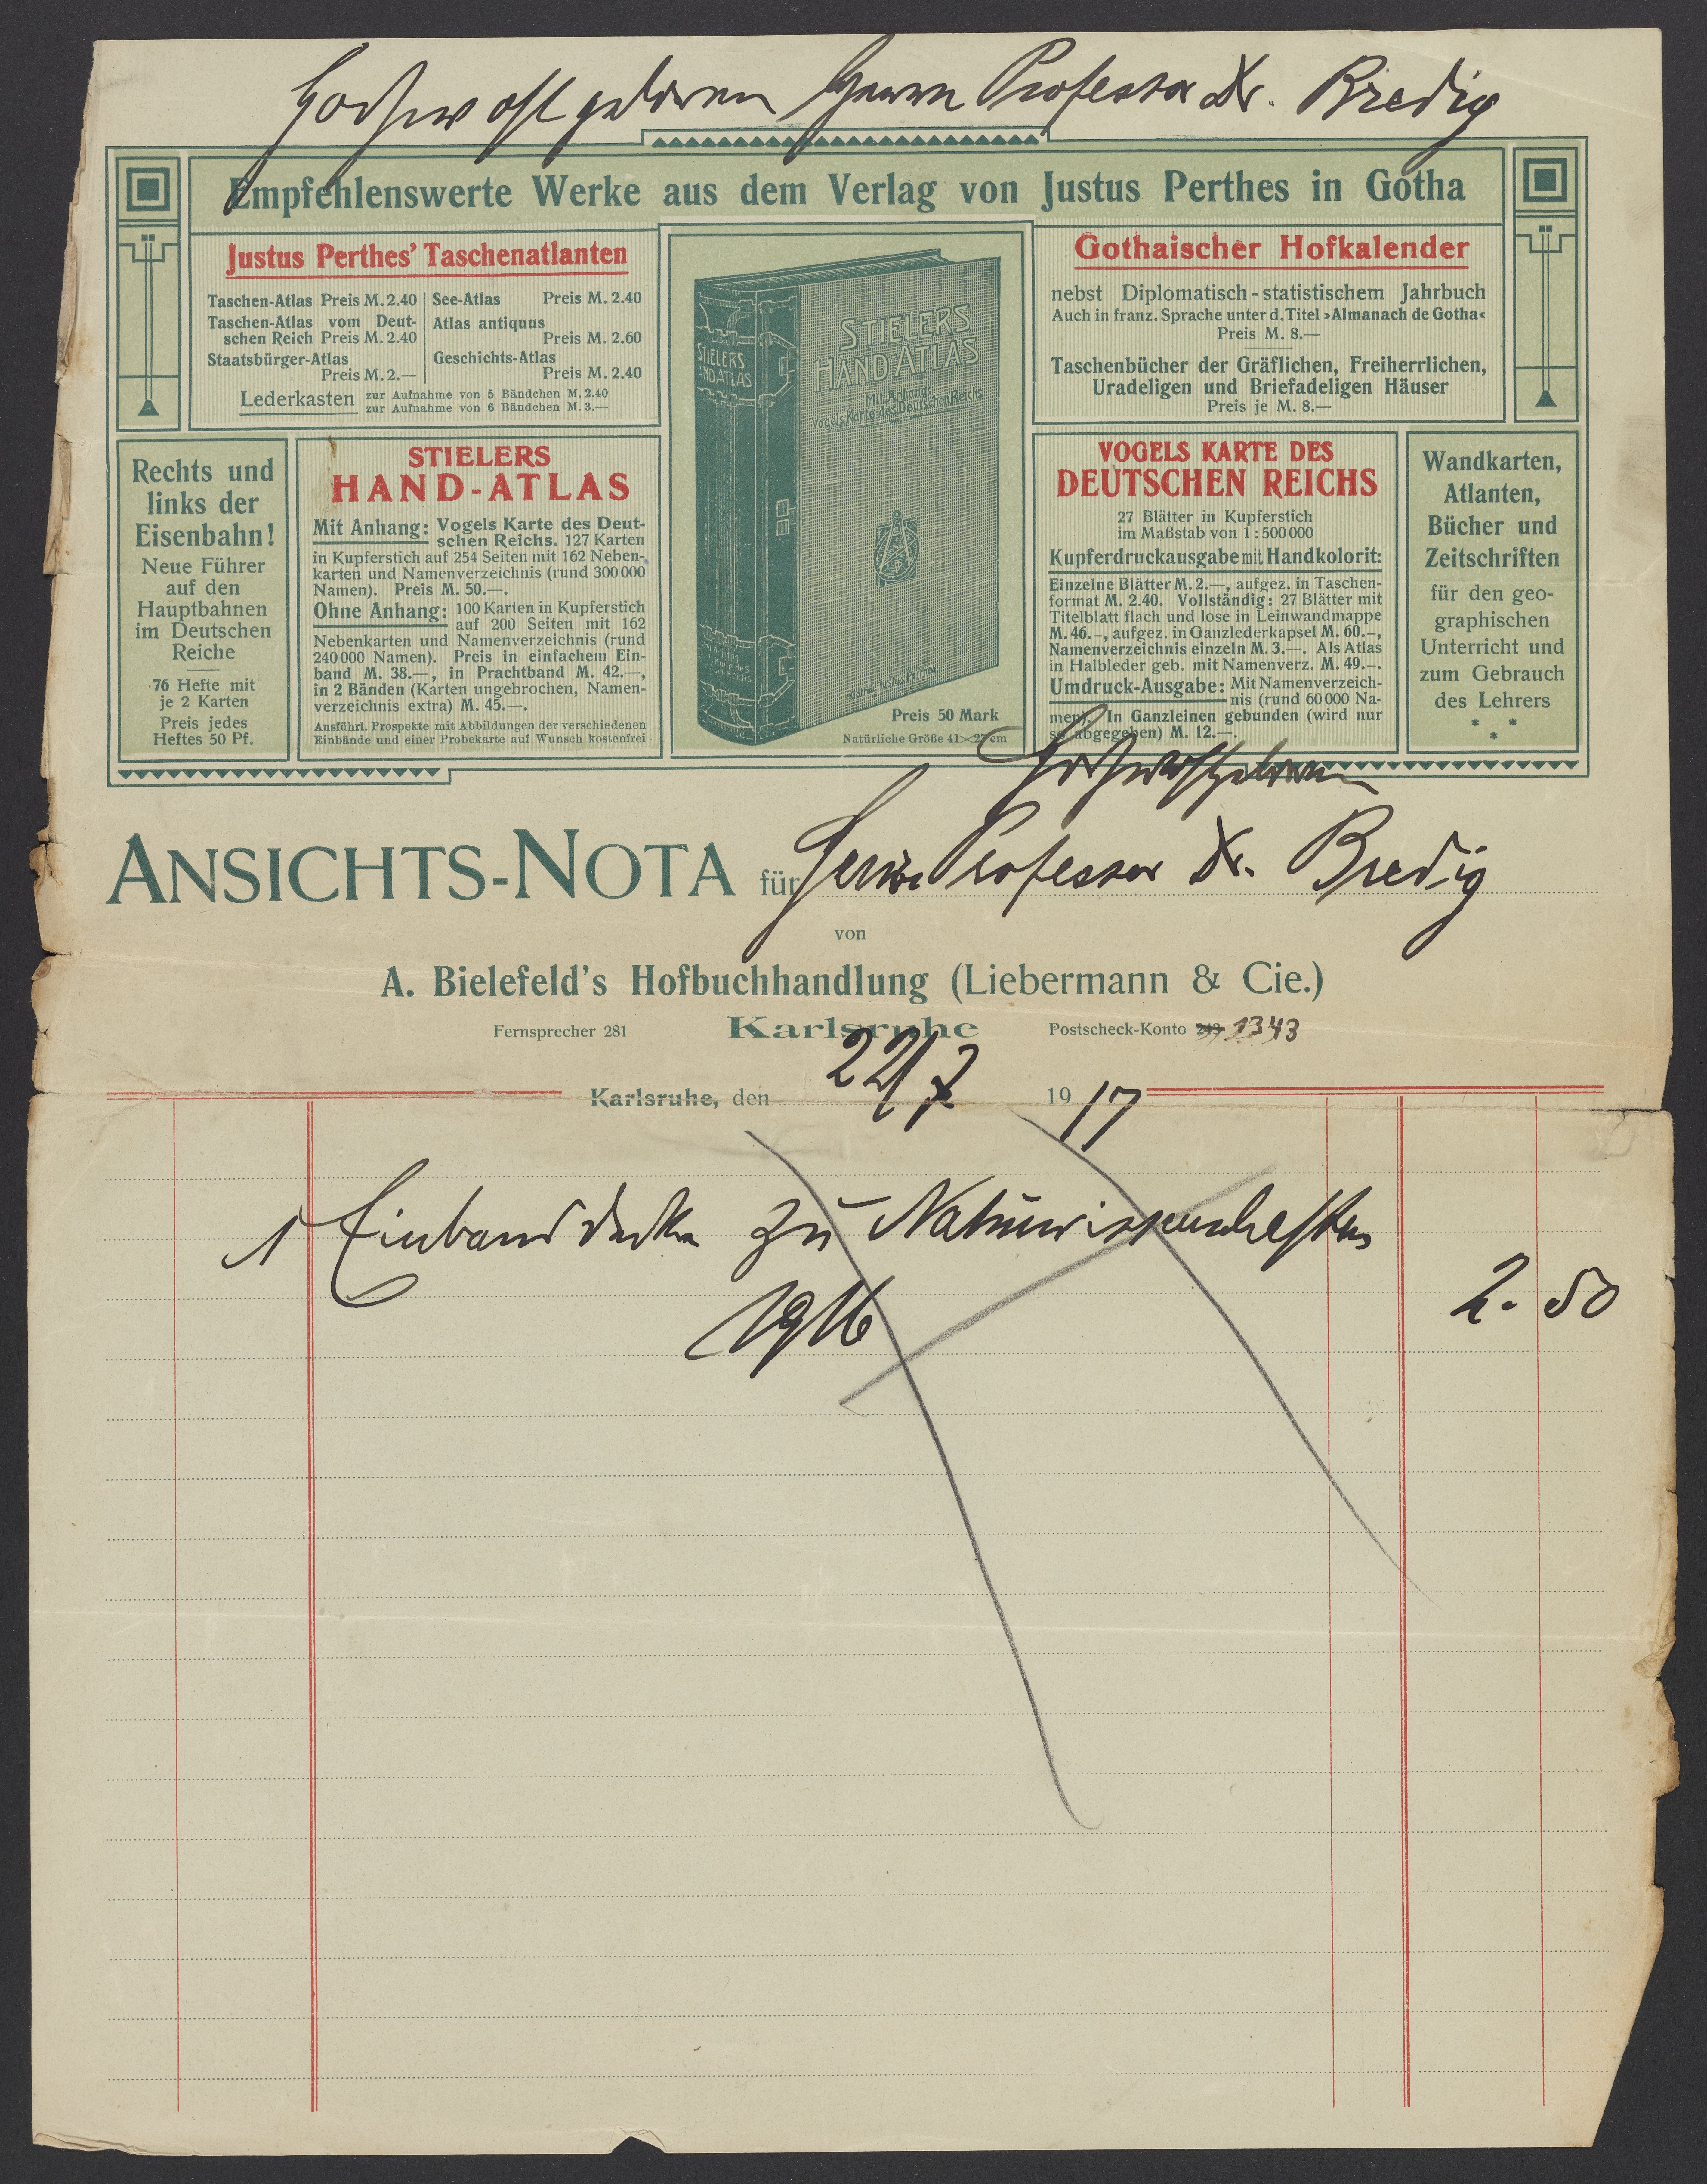 Hochwohlgeboren Herrn Professor Dr. Bredig
Empfehlenswerte Werke aus dem Verlag von Justus Perthes in Gotha
Justus Perthes' Taschenatlanten
Taschen-Atlas Preis M. 2.40
Taschen-Atlas vom Deut-
schen Reich Preis M. 2.40
Staatsbürger-Atlas
Preis M. 2.—
See-Atlas Preis M. 2.40
Atlas antiquus
Preis M. 2.60
Geschichts-Atlas
Preis M. 2.40
Lederkasten zur Aufnahme von 5 Bändchen M. 2.40
zur Aufnahme von 6 Bändchen M. 3.—
STIELERS
HAND-ATLAS
STIELERS
HAND-ATLAS
Mit Anhang:
Vogels Karte des Deutschen Reichs
Gotha: Justus Perthes
Preis 50 Mark
Natürliche Größe 41×27 cm
Gothaischer Hofkalender
nebst Diplomatisch-statistischem Jahrbuch
Auch in franz. Sprache unter d. Titel »Almanach de Gotha«
Preis M. 8.—
Taschenbücher der Gräflichen, Freiherrlichen,
Uradeligen und Briefadeligen Häuser
Preis je M. 8.—
Rechts und
links der
Eisenbahn!
Neue Führer
auf den
Hauptbahnen
im Deutschen
Reiche
76 Hefte mit
je 2 Karten
Preis jedes
Heftes 50 Pf.
STIELERS
HAND-ATLAS
Mit Anhang: Vogels Karte des Deut-
schen Reichs. 127 Karten
in Kupferstich auf 254 Seiten mit 162 Neben-
karten und Namenverzeichnis (rund 300 000
Namen). Preis M. 50.—.
Ohne Anhang: 100 Karten in Kupferstich
auf 200 Seiten mit 162
Nebenkarten und Namenverzeichnis (rund
240 000 Namen). Preis in einfachem Ein-
band M. 38.—, in Prachtband M. 42.—,
in 2 Bänden (Karten ungebrochen, Namen-
verzeichnis extra) M. 45.—.
Ausführl. Prospekte mit Abbildungen der verschiedenen
Einbände und einer Probekarte auf Wunsch kostenfrei
VOGELS KARTE DES
DEUTSCHEN REICHS
27 Blätter in Kupferstich
im Maßstab von 1 : 500 000
Kupferdruckausgabe mit Handkolorit:
Einzelne Blätter M. 2.—, aufgez. in Taschen-
format M. 2.40. Vollständig: 27 Blätter mit
Titelblatt flach und lose in Leinwandmappe
M. 46.—, aufgez. in Ganzlederkapsel M. 60.—,
Namenverzeichnis einzeln M. 3.—. Als Atlas
in Halbleder geb. mit Namenverz. M. 49.—.
Umdruck-Ausgabe: Mit Namenverzeich-
nis (rund 60 000 Na-
men). In Ganzleinen gebunden (wird nur
so abgegeben) M. 12.—.
Wandkarten,
Atlanten,
Bücher und
Zeitschriften
für den geo-
graphischen
Unterricht und
zum Gebrauch
des Lehrers
* * *
Hochwohlgeboren
ANSICHTS-NOTA für Herrn Professor Dr. Bredig
von
A. Bielefeld's Hofbuchhandlung (Liebermann & Cie.)
Fernsprecher 281 Karlsruhe Postscheck-Konto 243 1343
Karlsruhe, den 22/7 1917
1 Einbanddecke zu Naturwissenschaften
1916
2. 50